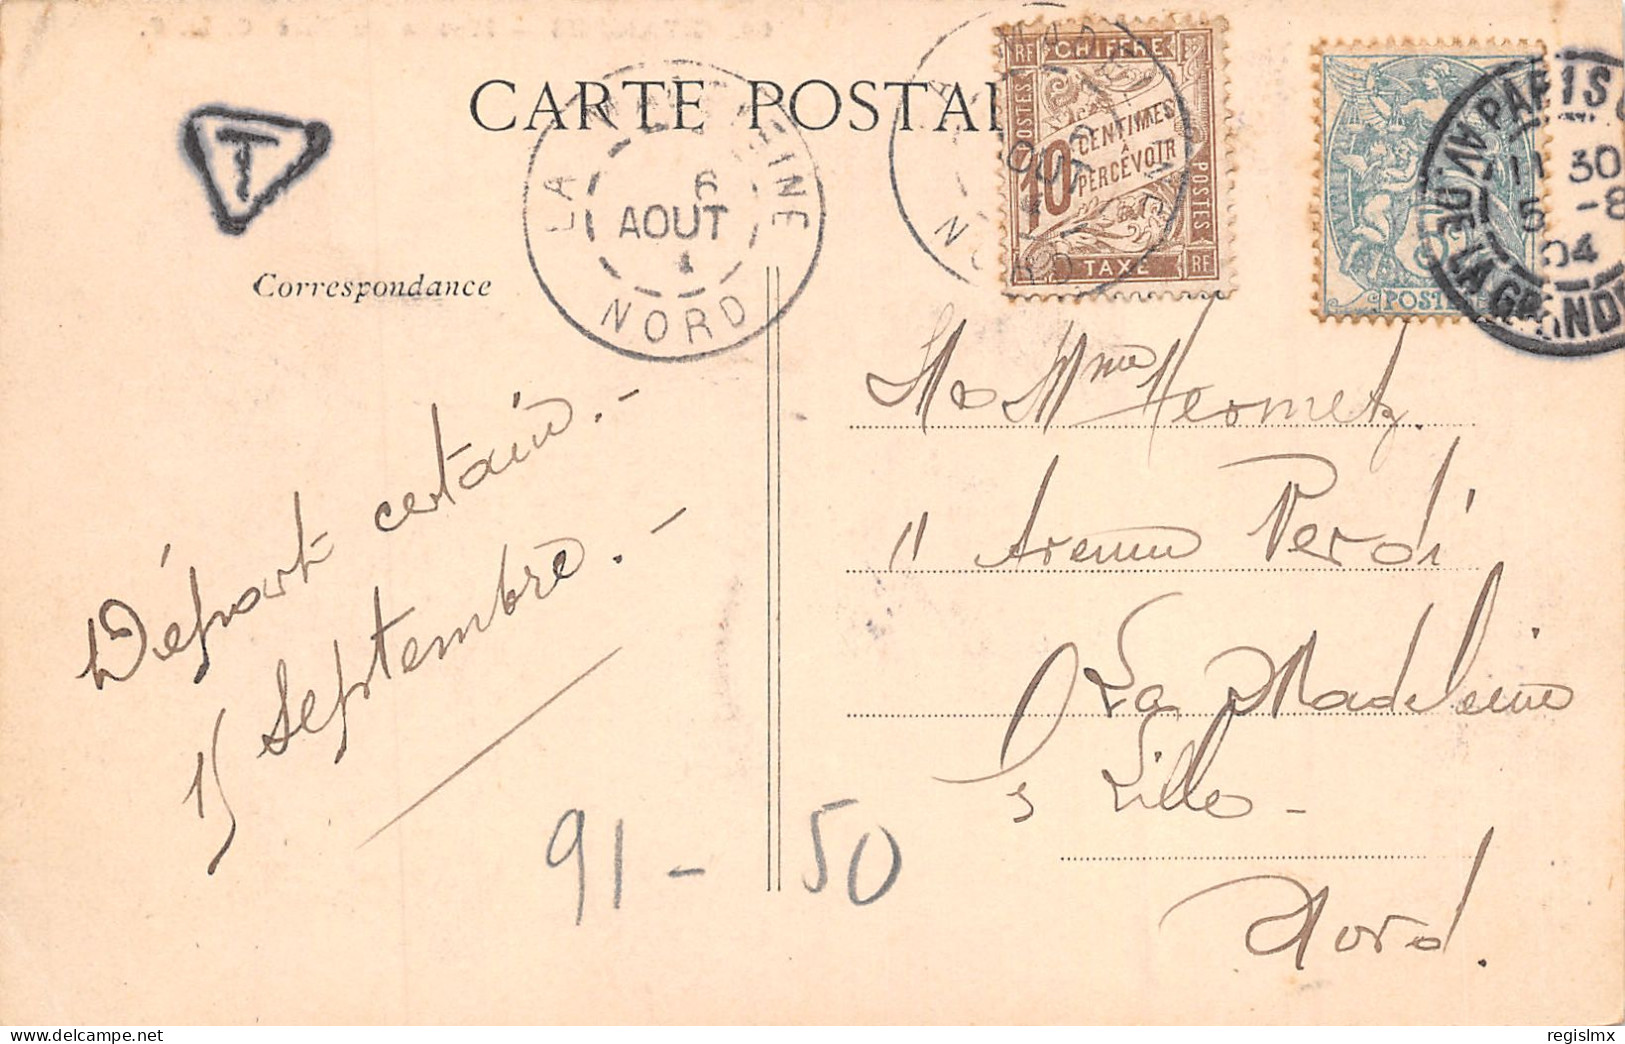 CARTE POSTAL
T
LA MADELEINE
6
AOUT
NORD
RF CHIFFRE RF
POSTES
10 CENTIMES
À
PERCEVOIR
POSTES
TAXE RF
PARIS
AV. DE LA GRANDE
11 30
5 -8
04
POSTES
Correspondance
Départ certain. -
15 Septembre. -
Mr Mme Hermetz.
11 Avenue Verdi
La Madeleine
Lille -
Nord.
91 - 50
regislmx